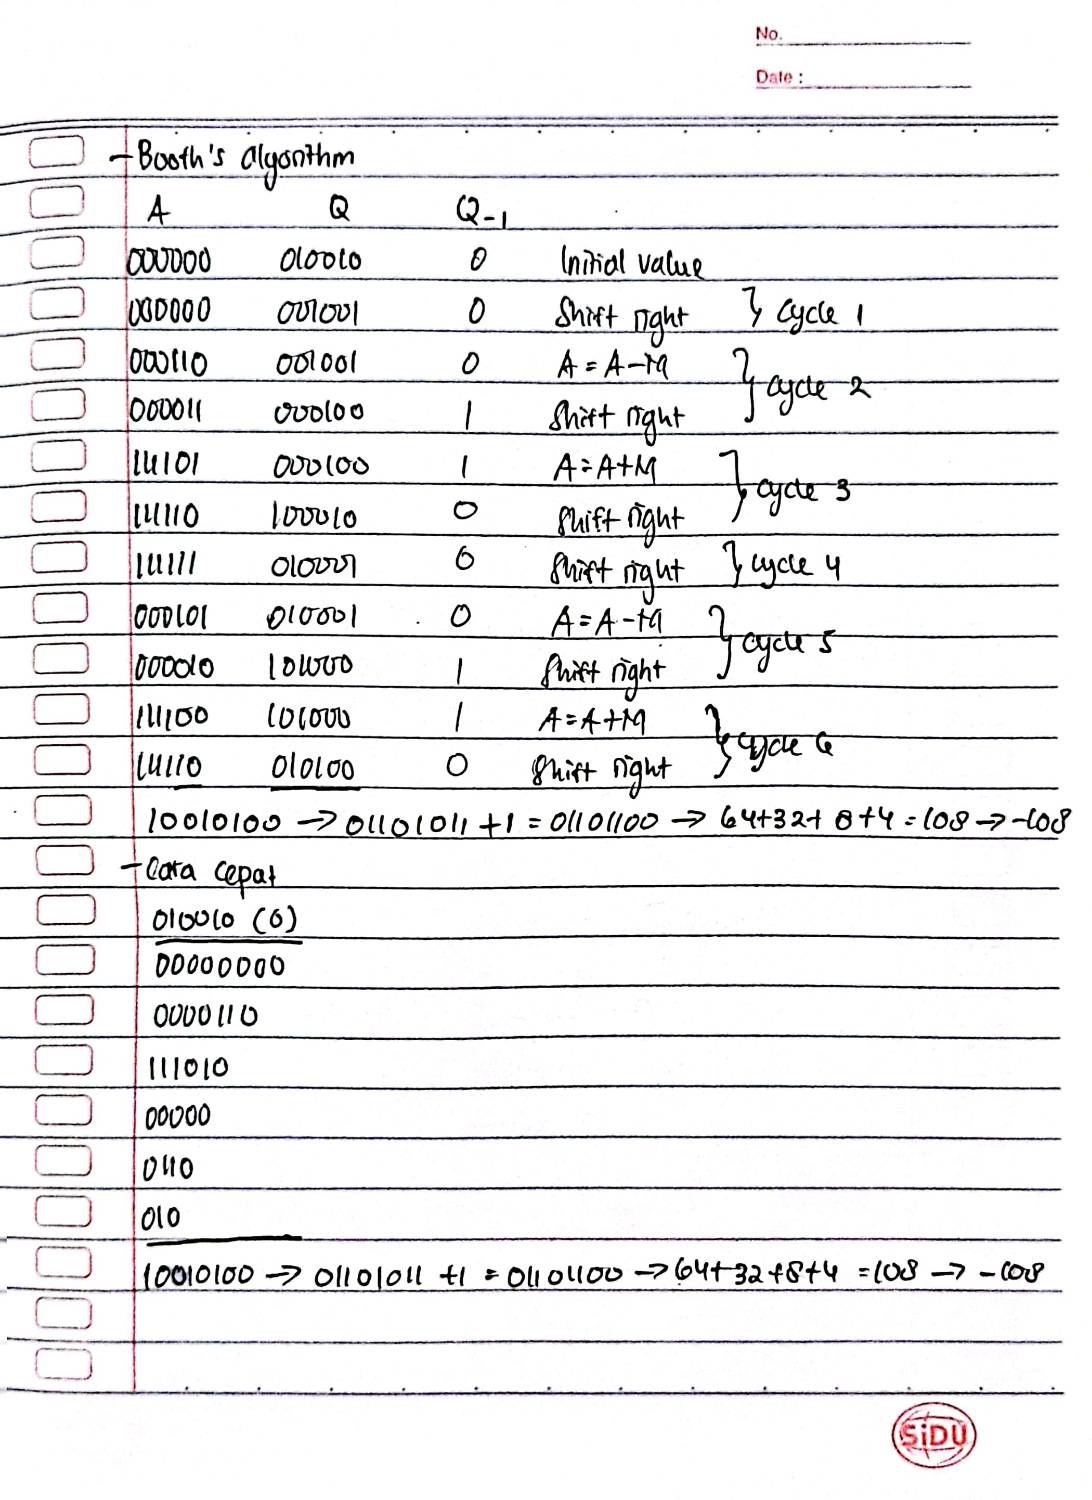 No.
Date :
- Booth's algorithm
A Q Q-1
000000 010010 0 Initial value
000000 001001 0 Shift right } Cycle 1
000110 001001 0 A = A-M
000011 000100 1 Shift right } cycle 2
111101 000100 1 A = A+M
111110 100010 0 Shift right } cycle 3
111111 010001 0 Shift right } cycle 4
000101 010001 0 A = A-M
000010 101000 1 Shift right } cycle 5
111100 101000 1 A = A+M
111110 010100 0 Shift right } cycle 6
10010100 → 01101011 +1 = 01101100 → 64+32+8+4 = 108 → -108
- Cara cepat
010010 (0)
00000000
0000110
111010
00000
0110
010
10010100 → 01101011 +1 = 01101100 → 64+32+8+4 = 108 → -108
SiDU